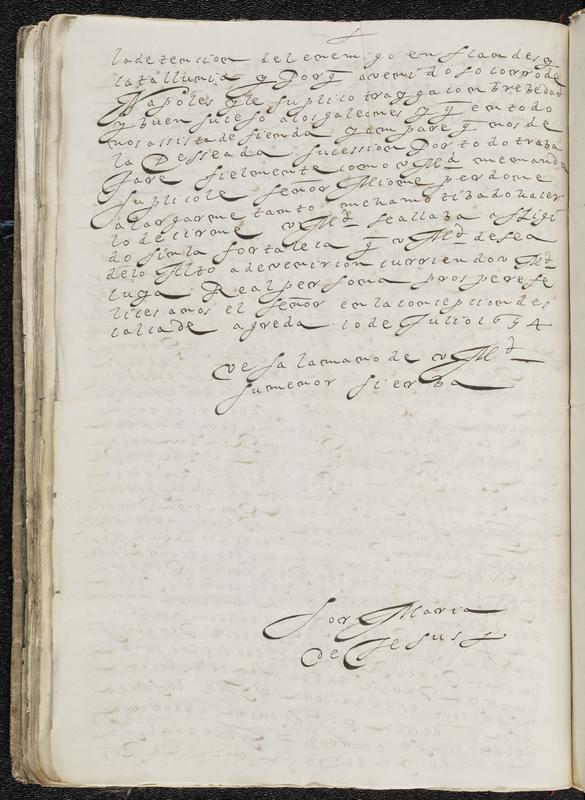 +
la detencion del enemigo en flandes y
catallunia y Porq̃ a venido socorro de
Napoles qle suplico traygacon brebedad
y buen suceso alos galeones y q̃ en todo
nos assista defienda y ampare q̃ nos de
la Desseada sucession Por todo traba
Jare fielmente como v Mḍ memanda
suplicole señor Mio me perdone
alargarme tanto mehamotibado hacer
lo decirme v Mḍ se allaba afligi
do sinla fortaleca q̃ v Mḍ desea
delo Alto a devenir con curriendo v Mḍ
cuya Real persona prospere fe
lices amos el señor en la concepcion des
calca de agreda 10 de Julio 1654
vesa la mano de v Mḍ
su menor sierba
Sor Maria
de Jesus +